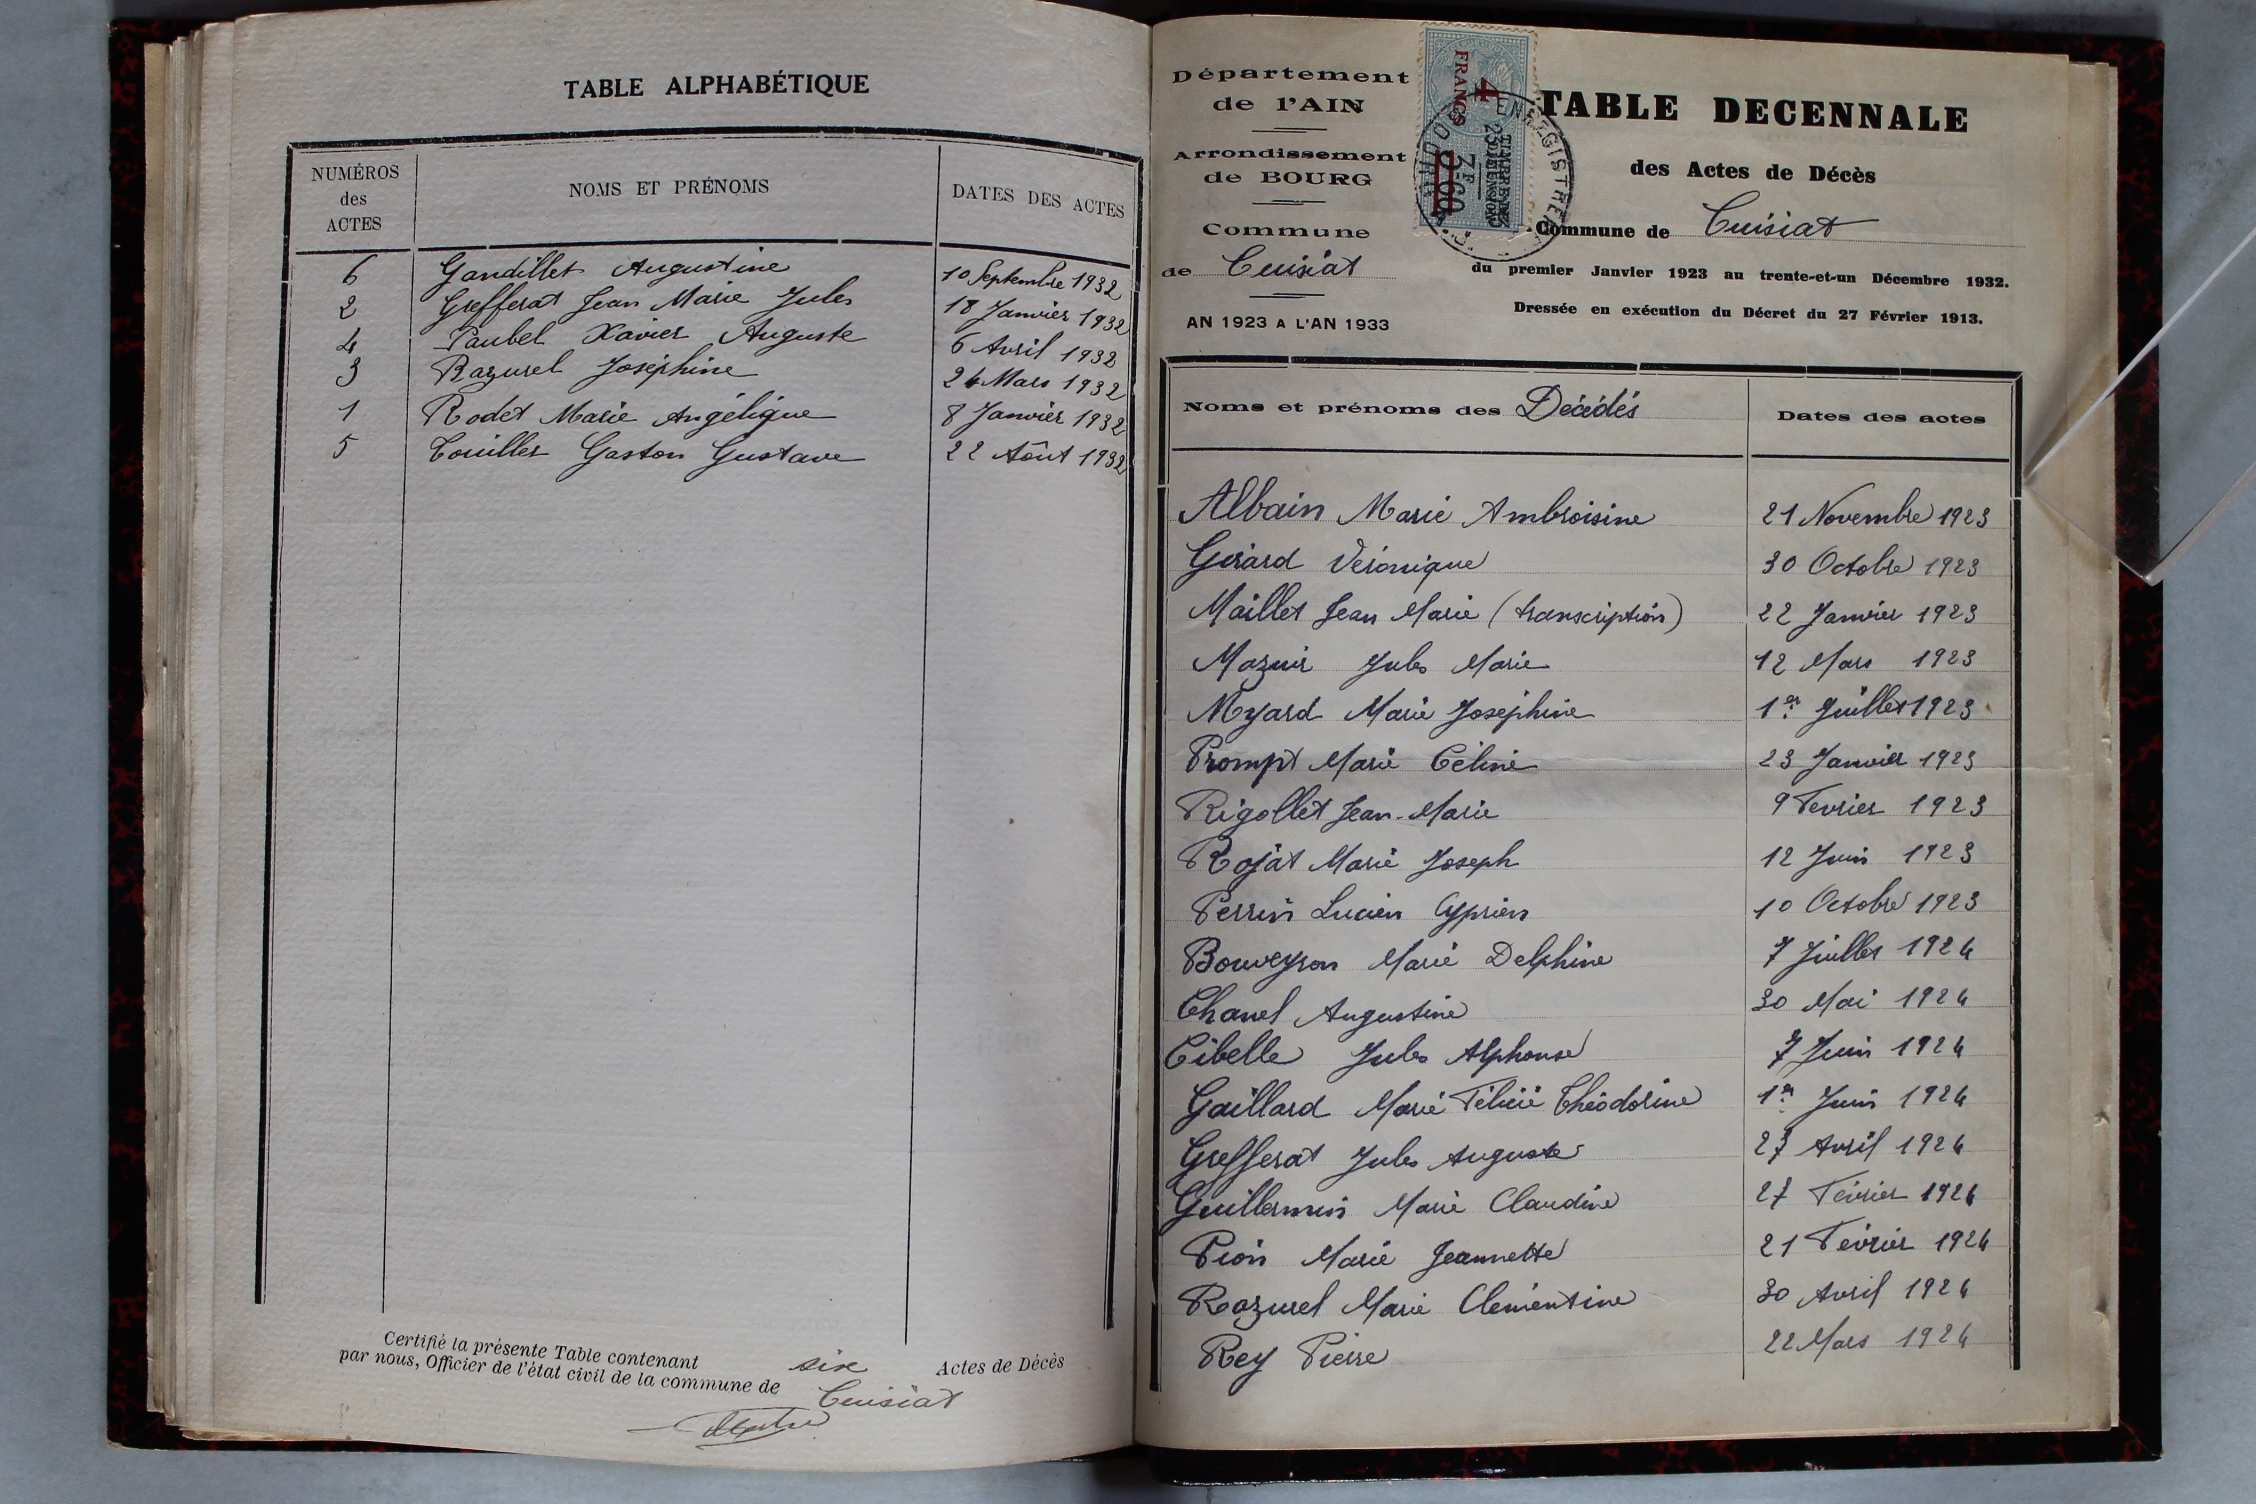 TABLE ALPHABÉTIQUE
NUMÉROS des ACTES
NOMS ET PRÉNOMS
DATES DES ACTES
6 Gandillet Augustine 10 Septembre 1932
2 Grefferat Jean Marie Jules 18 Janvier 1932
4 Paubel Xavier Auguste 6 Avril 1932
3 Razurel Joséphine 24 Mars 1932
1 Rodet Marie Angélique 8 Janvier 1932
5 Touillet Gaston Gustave 22 Août 1932
Certifié la présente Table contenant six Actes de Décès
par nous, Officier de l'état civil de la commune de Cuisiat
Département
de l'AIN
Arrondissement
de BOURG
Commune
de Cuisiat
AN 1923 A L'AN 1933
4
FRANCS
ENREGISTREM
TABLE DECENNALE
des Actes de Décès
Commune de Cuisiat
du premier Janvier 1923 au trente-et-un Décembre 1932.
Dressée en exécution du Décret du 27 Février 1913.
Noms et prénoms des Décédés
Dates des actes
Albain Marie Ambroisine 21 Novembre 1923
Girard Véronique 30 Octobre 1923
Maillet Jean Marie (transcription) 22 Janvier 1923
Mazuir Jules Marie 12 Mars 1923
Myard Marie Joséphine 1er Juillet 1923
Prompt Marie Céline 23 Janvier 1923
Rigollet Jean-Marie 9 Fevrier 1923
Rojat Marie Joseph 12 Juin 1923
Perrin Lucien Cyprien 10 Octobre 1923
Bouveyron Marie Delphine 7 Juillet 1924
Chanel Augustine 30 Mai 1924
Cibelle Jules Alphonse 7 Juin 1924
Gaillard Marie Félicie Théodorine 1er Juin 1924
Grefferat Jules Auguste 27 Avril 1924
Guillermin Marie Claudine 27 Février 1924
Pion Marie Jeannette 21 Février 1924
Razurel Marie Clémentine 30 Avril 1924
Rey Pierre 22 Mars 1924